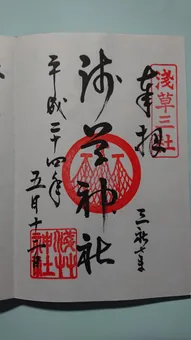 浅草三社
奉拝
三社さま
浅草神社
平成二十四年
五月十六日
浅草
神社